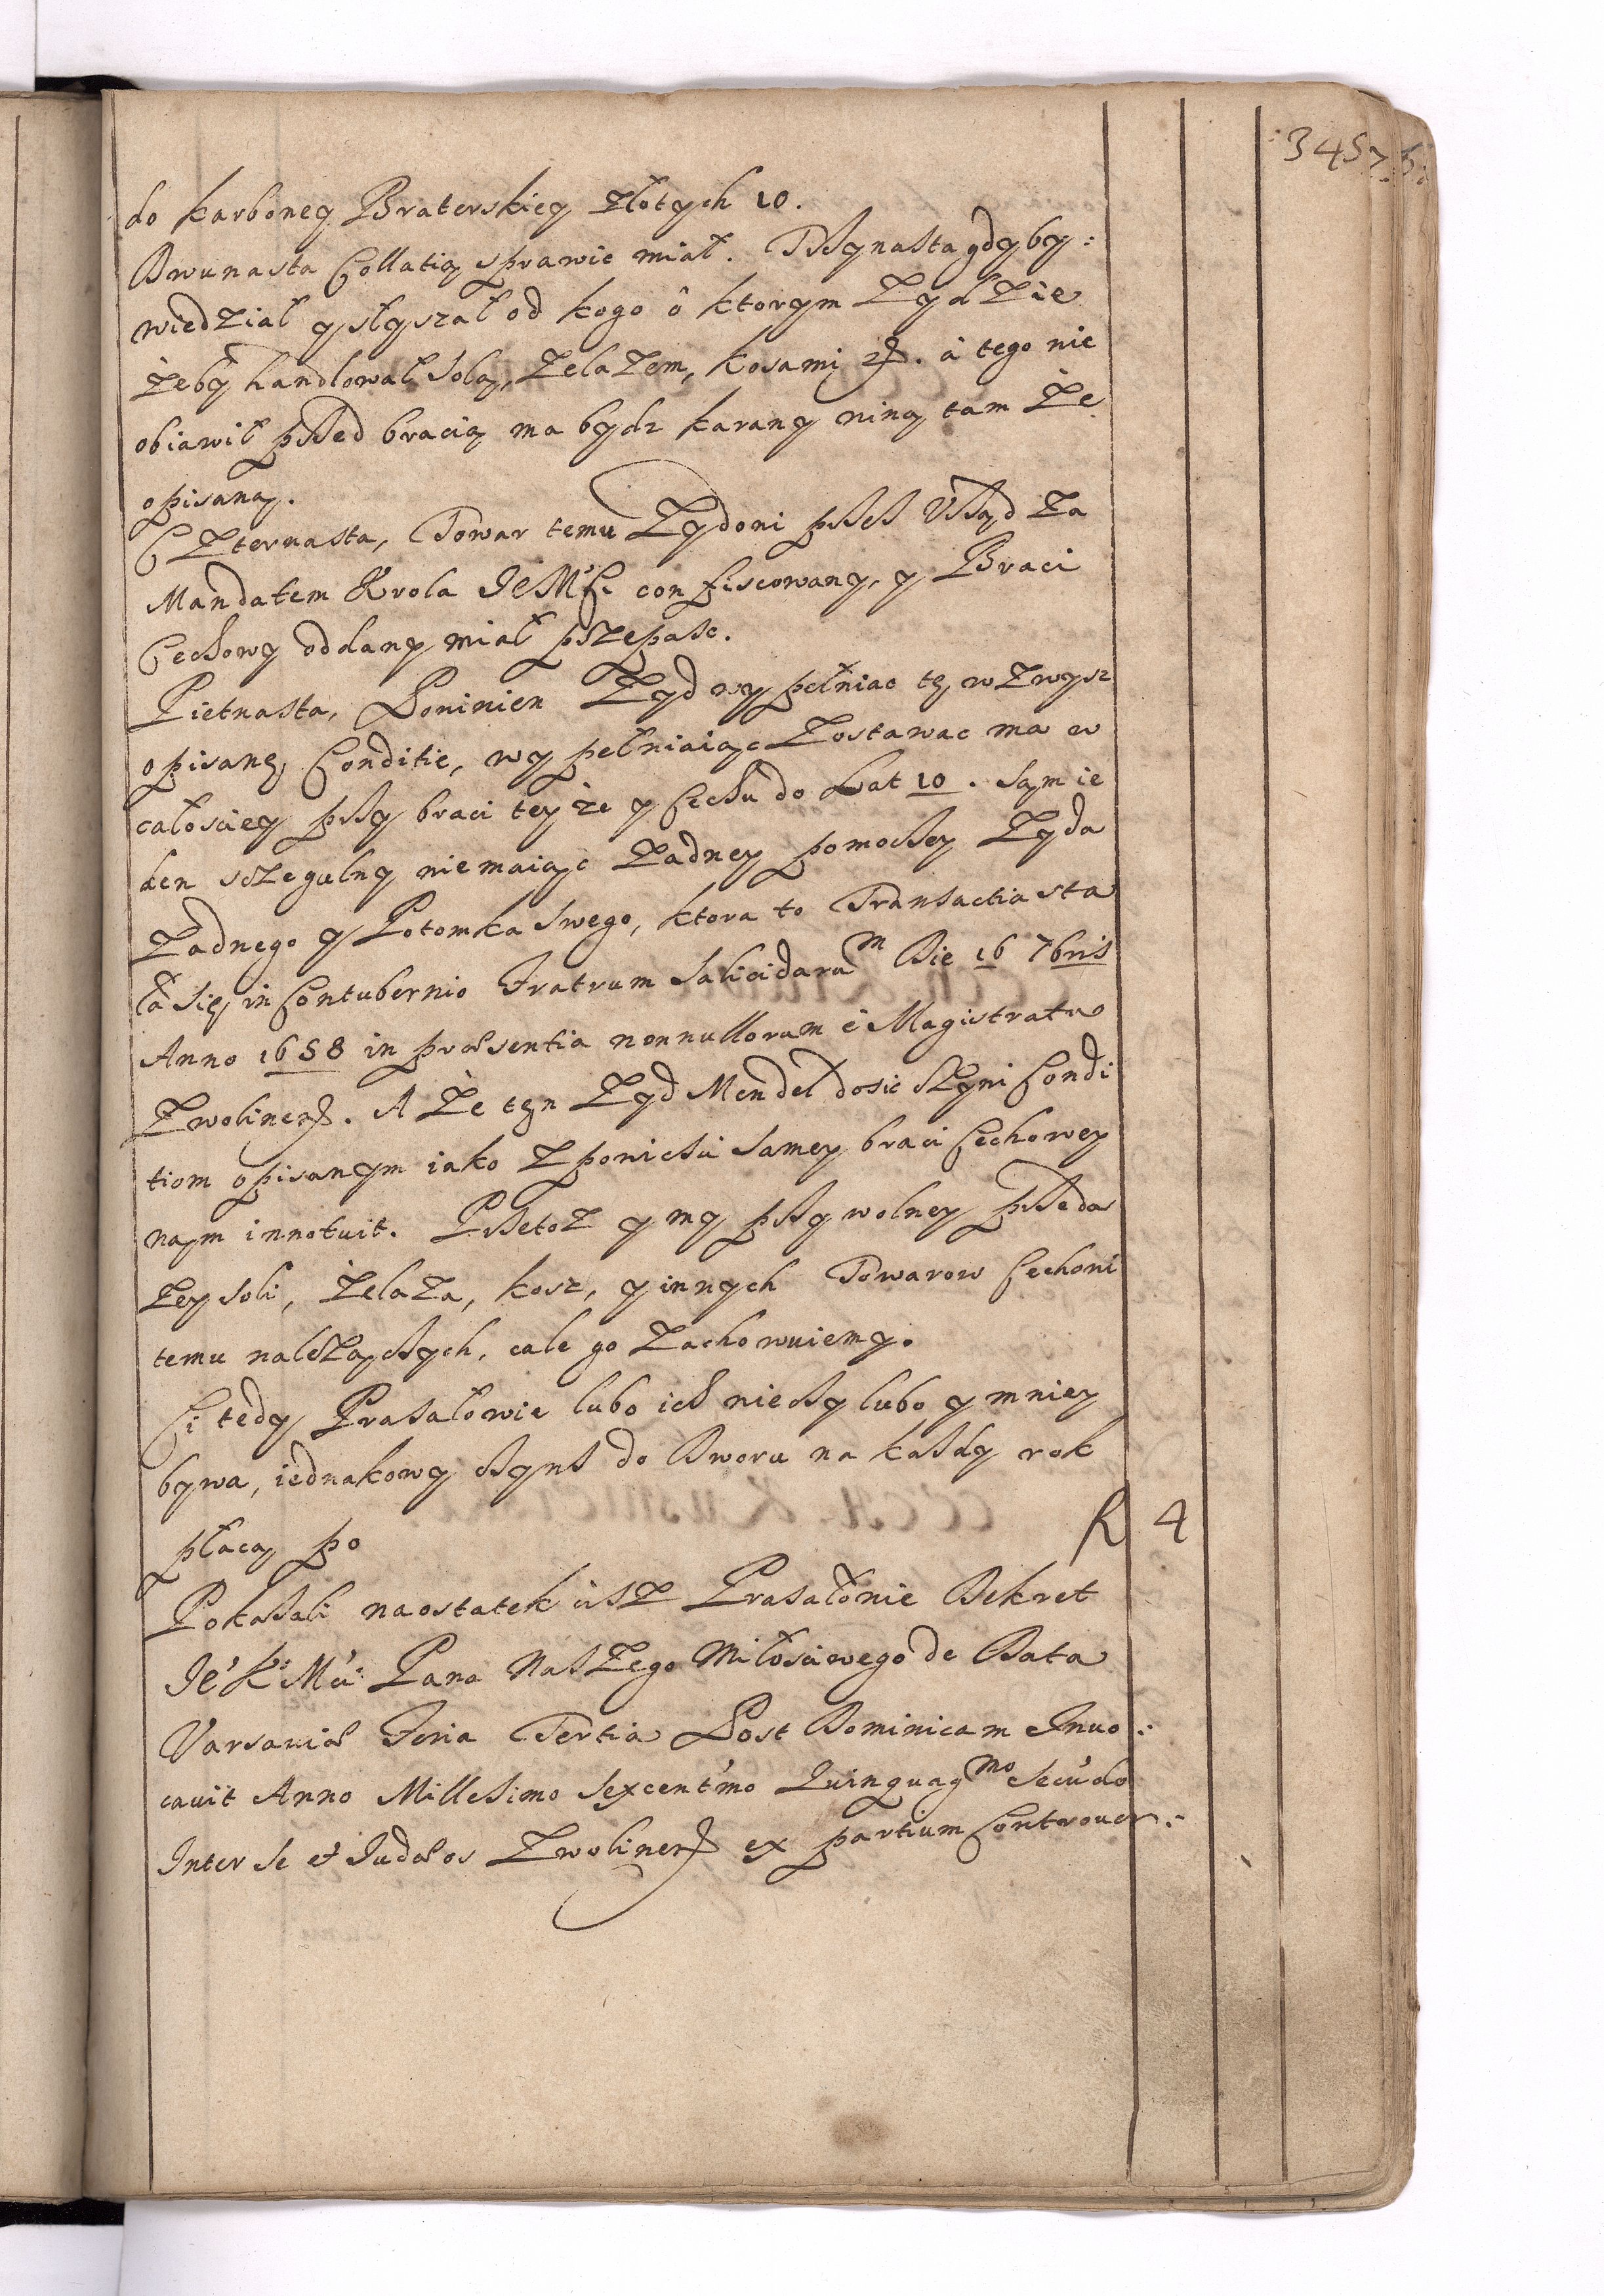 3457.
do karboney Braterskiey złotych 10.
Dwunasta Collatią sprawic miał. Trzynasta gdy by:
wiedział y słyszał od kogo ô ktorym Zydzie
żeby handlował solą, żelazem, kosami etc. à tego nie
obiawił przed bracią ma bydz karany winą tam że
opisaną.
Czternasta, Towar temu Zydowi przez Urząd za
Mandatem Krola JeMSci confiscowany, y Braci
Cechowy oddany miał przepasc.
Pietnasta, Powinien Zyd wypełniac tę, wzwysz
opisanę, Conditie, wypełniaiąc zostawac ma w
całosciey przy braci teyże y Cechu do Lat 10. sąm ie
den sczegulny niemaiąc żadney pomoczey Zyda
żadnego y Potomka swego, ktora to Transactia sta
ła się, in Contubernio Fratrum Salicidaru m Die 16 7bris
Anno 1658 in præsentia nonnullorum è Magistratu
Zwolinen. A że tęn Zyd Mendel dosic czyni Condi
tiom opisanym iako z powiesci samey braci Cechowey
nąm innotuit. Przetoz y my przy wolney przeda
zey soli, żelaza, kosz, y innych Towarow Cechowi
temu należączych, cale go zachowuiemy.
Ci tedy Prasałowie lubo ich wieczy lubo y mniey
bywa, iednakowy czynsz do Dworu na każdy rok
płacą po f 4
Pokazali naostatek cisz Prasałowie Dekret
Je K: Mci: Pana Naszego Miłosciwego de Data
Varsaviæ Feria Tertia Post Dominicam Invo:
cavit Anno Millesimo Sexcentmo Quinquag mo Secudo
Inter se et Judæos Zwolinen ex partium Controver: